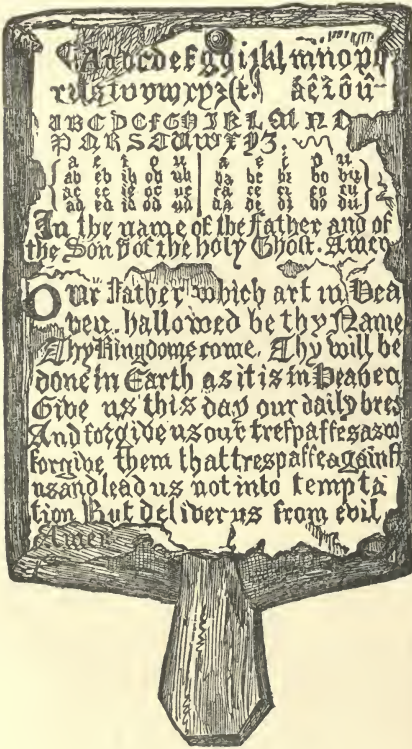 Aabcdefggijklmnopq
rſstuvwxyz(t: âêîôû
ABCDEFGHIKLMNO
PQRSTUWXYZ.
a e i o u | a e i o u
ab eb ib ob ub | ba be bi bo bu
ac ec ic oc uc | ca ce ci co cu
ad ed id od ud | da de di do du
In the name of the Father and of
the Son & of the holy Ghoſt. Amen
Our Father which art in Hea
ven. hallowed be thy Name
Thy Kingdome come. Thy will be
done in Earth as it is in Heaven
Give us this day our daily brea
And forgive us our treſpaſſes as w
forgive them that treſpaſſe againſt
us and lead us not into tempta
tion But deliver us from evil.
Amen